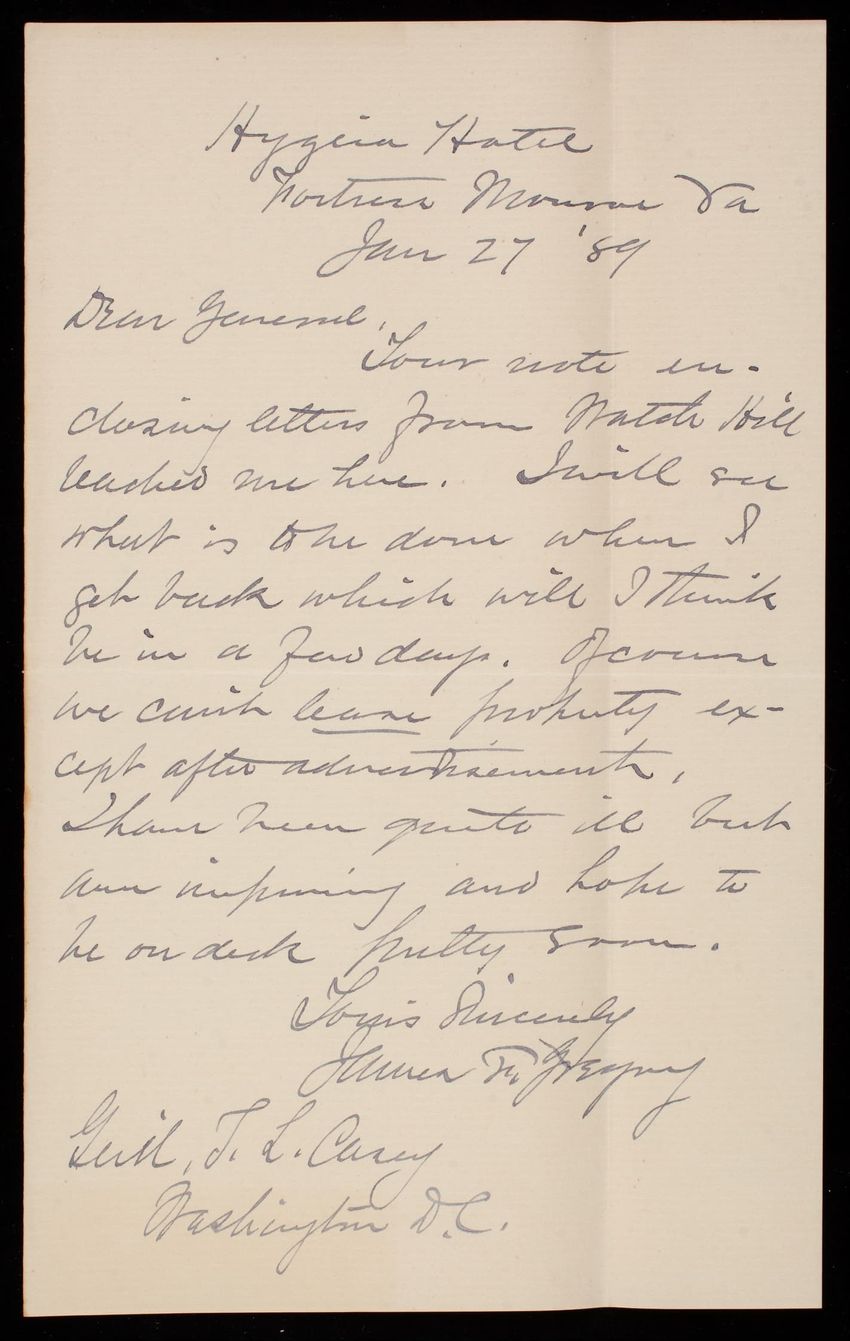 Hygeia Hotel
Fortress Monroe Va
Jan 27 '89
Dear General,
Your note en-
closing letters from Watch Hill
reached me here. I will see
what is to be done when I
get back which will I think
be in a few days. Of course
we can't lease property ex-
cept after advertisement,
I have been quite ill but
am improving and hope to
be on deck pretty soon.
Yours Sincerely
James F. Gregory
Genl, T. L. Casey
Washington D.C.